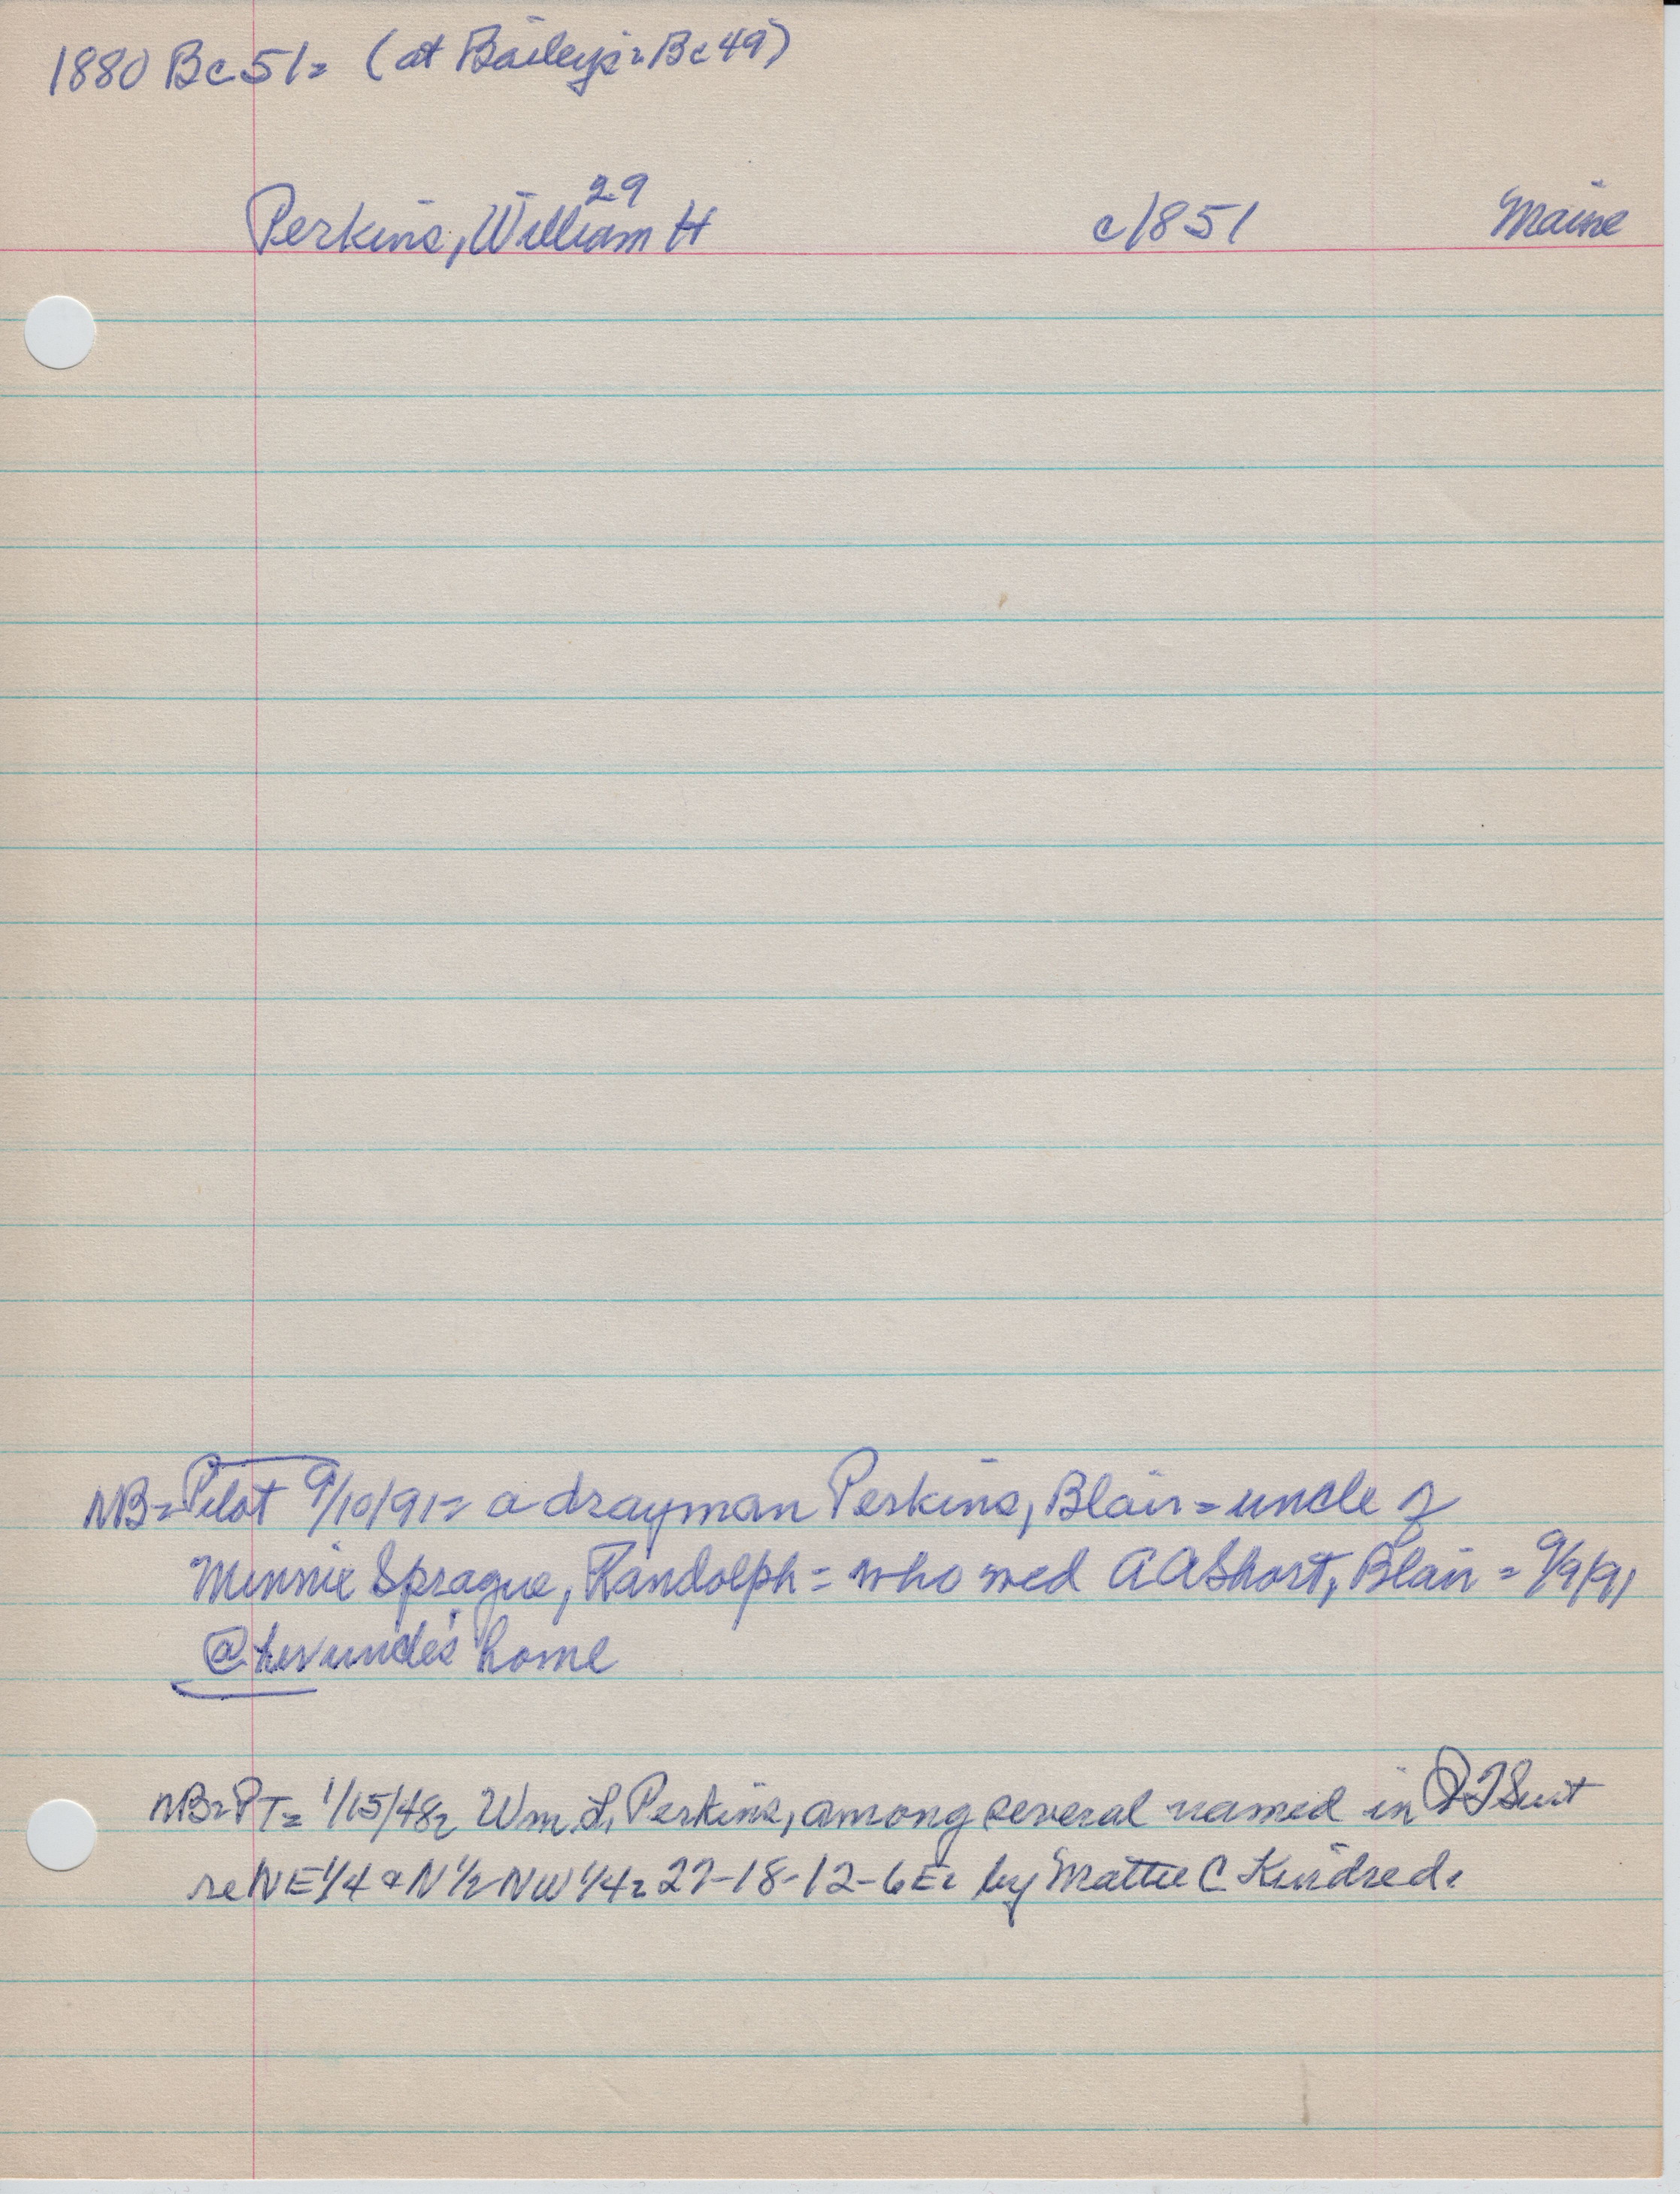 1880 Bc51= (at Bailey's=Bc49)
29
Perkins, William H c1851 Maine
NB=Pilot 9/10/91= a drayman Perkins, Blair=uncle of
Minnie Sprague, Randolph= who wed AAShort, Blair= 9/9/91
@ her uncle's home
NB=PT= 1/15/48= Wm. L. Perkins, among several named in QTSuit
re NE1/4 & N1/2 NW1/4= 27-18-12-6E= by Mattie C Kindred.